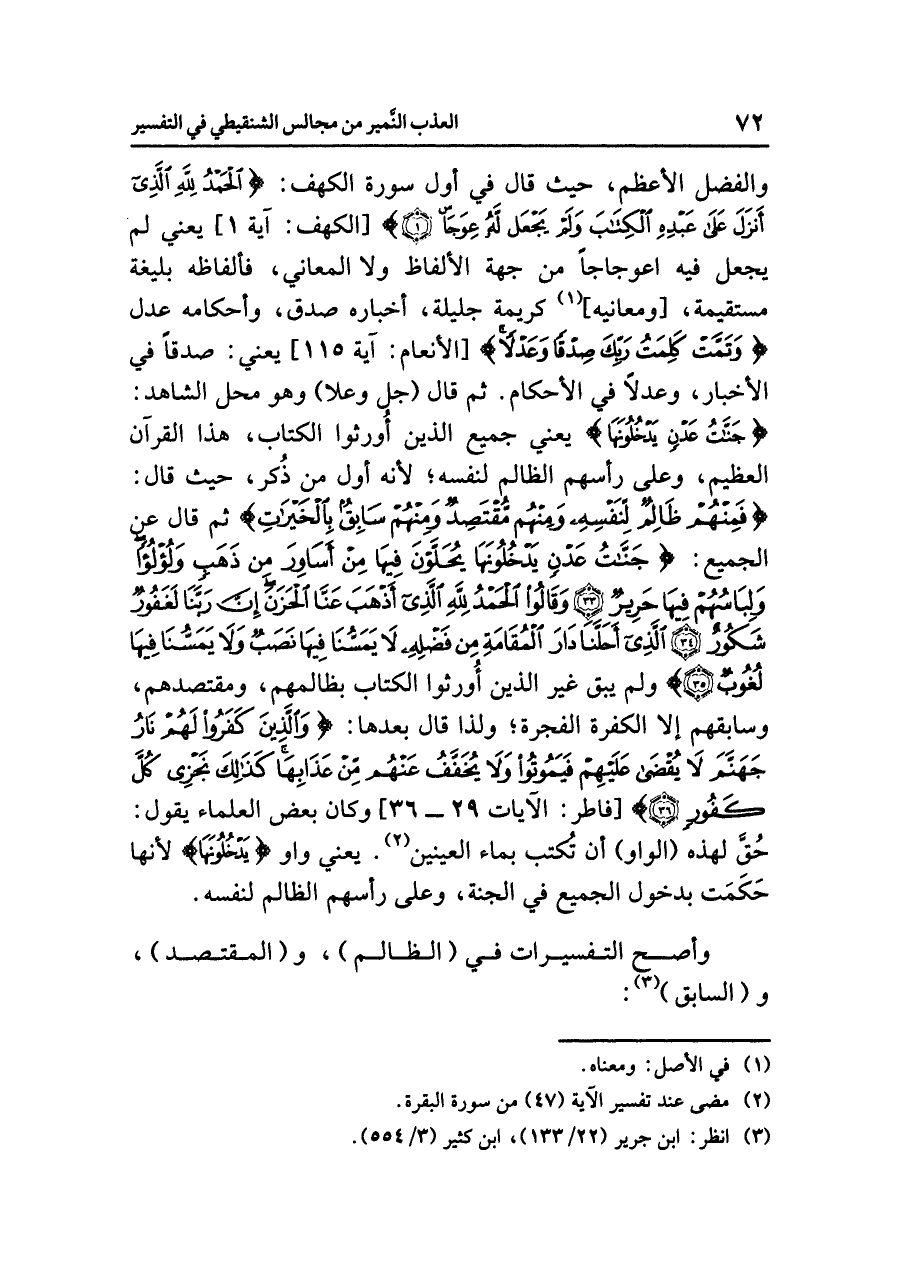 ٧٢ العذب النَّمير من مجالس الشنقيطي في التفسير
والفضل الأعظم، حيث قال في أول سورة الكهف: ﴿ ٱلْحَمْدُ لِلَّهِ ٱلَّذِىٓ
أَنزَلَ عَلَىٰ عَبْدِهِ ٱلْكِتَٰبَ وَلَمْ يَجْعَل لَّهُۥ عِوَجَاۜ ۝١﴾ [الكهف: آية ١] يعني لم
يجعل فيه اعوجاجاً من جهة الألفاظ ولا المعاني، فألفاظه بليغة
مستقيمة، [ومعانيه](١) كريمة جليلة، أخباره صدق، وأحكامه عدل
﴿ وَتَمَّتْ كَلِمَتُ رَبِّكَ صِدْقًا وَعَدْلًاۚ﴾ [الأنعام: آية ١١٥] يعني: صدقاً في
الأخبار، وعدلاً في الأحكام. ثم قال (جل وعلا) وهو محل الشاهد:
﴿ جَنَّٰتُ عَدْنٍ يَدْخُلُونَهَا ﴾ يعني جميع الذين أُورثوا الكتاب، هذا القرآن
العظيم، وعلى رأسهم الظالم لنفسه؛ لأنه أول من ذُكر، حيث قال:
﴿ فَمِنْهُمْ ظَالِمٌ لِّنَفْسِهِۦ وَمِنْهُم مُّقْتَصِدٌ وَمِنْهُمْ سَابِقٌۢ بِٱلْخَيْرَٰتِ﴾ ثم قال عن
الجميع: ﴿ جَنَّٰتُ عَدْنٍ يَدْخُلُونَهَا يُحَلَّوْنَ فِيهَا مِنْ أَسَاوِرَ مِن ذَهَبٍ وَلُؤْلُؤًاۖ
وَلِبَاسُهُمْ فِيهَا حَرِيرٌ ۝٣٣ وَقَالُوا۟ ٱلْحَمْدُ لِلَّهِ ٱلَّذِىٓ أَذْهَبَ عَنَّا ٱلْحَزَنَۖ إِنَّ رَبَّنَا لَغَفُورٌ
شَكُورٌ ۝٣٤ ٱلَّذِىٓ أَحَلَّنَا دَارَ ٱلْمُقَامَةِ مِن فَضْلِهِۦ لَا يَمَسُّنَا فِيهَا نَصَبٌ وَلَا يَمَسُّنَا فِيهَا
لُغُوبٌ ۝٣٥﴾ ولم يبق غير الذين أُورثوا الكتاب بظالمهم، ومقتصدهم،
وسابقهم إلا الكفرة الفجرة؛ ولذا قال بعدها: ﴿ وَٱلَّذِينَ كَفَرُوا۟ لَهُمْ نَارُ
جَهَنَّمَ لَا يُقْضَىٰ عَلَيْهِمْ فَيَمُوتُوا۟ وَلَا يُخَفَّفُ عَنْهُم مِّنْ عَذَابِهَاۚ كَذَٰلِكَ نَجْزِى كُلَّ
كَفُورٍ ۝٣٦﴾ [فاطر: الآيات ٢٩ ــ ٣٦] وكان بعض العلماء يقول:
حُقَّ لهذه (الواو) أن تُكتب بماء العينين(٢). يعني واو ﴿ يَدْخُلُونَهَا﴾ لأنها
حَكَمَت بدخول الجميع في الجنة، وعلى رأسهم الظالم لنفسه.
وأصح التفسيرات في (الظالم)، و(المقتصد)،
و(السابق)(٣):
(١) في الأصل: ومعناه.
(٢) مضى عند تفسير الآية (٤٧) من سورة البقرة.
(٣) انظر: ابن جرير (٢٢/ ١٣٣)، ابن كثير (٣/ ٥٥٤).